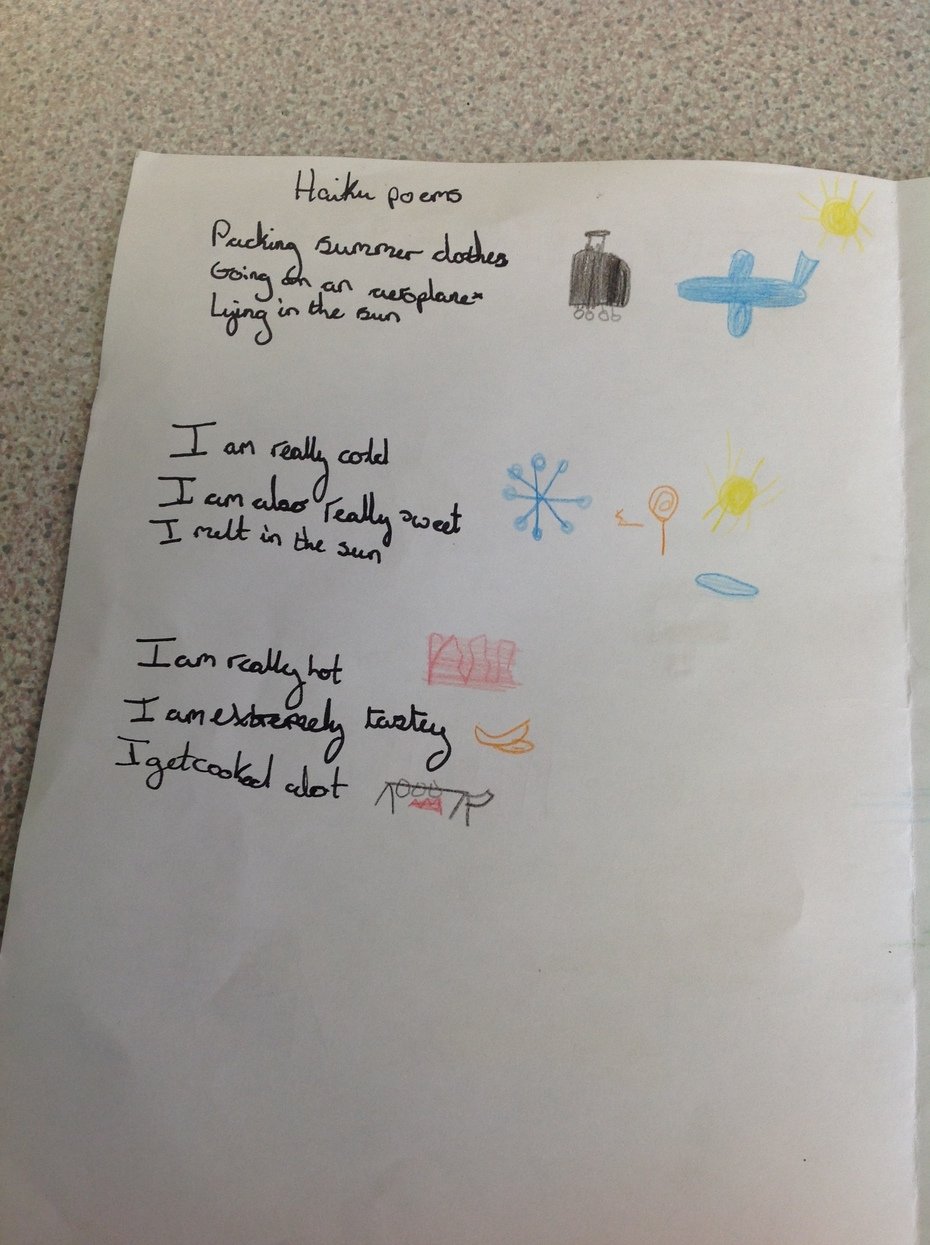 Haiku poems
Packing summer clothes
Going on an aeroplane*
Lying in the sun
I am really cold
I am also really sweet
I melt in the sun
I am really hot
I am extremely tastey
I get cooked alot